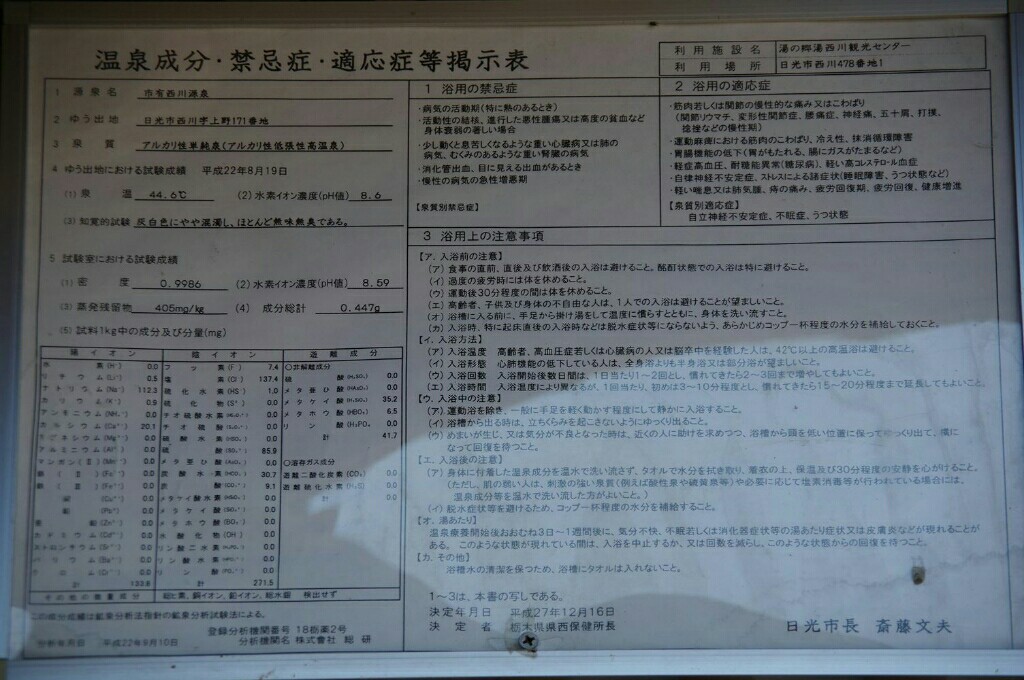 温泉成分・禁忌症・適応症等掲示表
利用施設名 湯の郷湯西川観光センター
利用場所 日光市西川478番地1
1 源泉名 市有西川源泉
2 ゆう出地 日光市西川字上野171番地
3 泉質 アルカリ性単純泉(アルカリ性低張性高温泉)
4 ゆう出地における試験成績 平成22年8月19日
(1) 泉温 44.6℃ (2) 水素イオン濃度(pH値) 8.6
(3) 知覚的試験 灰白色にやや混濁し、ほとんど無味無臭である。
5 試験室における試験成績
(1) 密度 0.9986 (2) 水素イオン濃度(pH値) 8.59
(3) 蒸発残留物 405mg/kg (4) 成分総計 0.447g
(5) 試料1kg中の成分及び分量(mg)
陽イオン 陰イオン 遊離成分
水素(H) 0.0 フッ素(F) 7.4 ○非解離成分
0.5 塩素(Cl) 137.4 硫酸(H₂SO₄) 0.0
ナトリウム(Na) 112.3 硫化水素(HS) 1.0 メタ亜ひ酸 0.0
カリウム(K) 0.9 硫化物 0.0 メタケイ酸 35.2
アンモニウム(NH₄) 0.0 チオ硫酸水素 0.0 メタホウ酸(HBO₂) 6.5
カルシウム(Ca) 20.1 チオ硫酸 0.0 リン酸(H₃PO₄) 0.0
マグネシウム(Mg) 0.0 硫酸水素 0.0 計 41.7
アルミニウム(Al) 0.0 硫酸 85.9
マンガン 0.0 メタ亜ひ酸 0.0 ○溶存ガス成分
0.0 炭酸水素 30.7 遊離二酸化炭素(CO₂) 0.0
0.0 炭酸 9.1 遊離硫化水素(H₂S) 0.0
0.0 メタケイ酸水素 0.0 計 0.0
0.0 メタケイ酸 0.0
0.0 メタホウ酸(BO₂) 0.0
カドミウム 0.0 水酸化物(OH) 0.0
ストロンチウム 0.0 リン酸二水素 0.0
バリウム 0.0 リン酸水素 0.0
0.0 リン酸(PO₄) 0.0
計 133.8 計 271.5
その他の微量成分 総ヒ素、銅イオン、鉛イオン、総水銀 検出せず
この成分成績は鉱泉分析法指針の鉱泉分析試験法による。
登録分析機関番号 18樹薬2号
分析年月日 平成22年9月10日 分析機関名 株式会社 総研
1 浴用の禁忌症
・病気の活動期(特に熱のあるとき)
・活動性の結核、進行した悪性腫瘍又は高度の貧血など
身体衰弱の著しい場合
・少し動くと息苦しくなるような重い心臓病又は肺の
病気、むくみのあるような重い腎臓の病気
・消化管出血、目に見える出血があるとき
・慢性の病気の急性増悪期
【泉質別禁忌症】
2 浴用の適応症
・筋肉若しくは関節の慢性的な痛み又はこわばり
(関節リウマチ、変形性関節症、腰痛症、神経痛、五十肩、打撲、
捻挫などの慢性期)
・運動麻痺における筋肉のこわばり、冷え性、抹消循環障害
・胃腸機能の低下(胃がもたれる、腸にガスがたまるなど)
・軽症高血圧、耐糖能異常(糖尿病)、軽い高コレステロール血症
・自律神経不安定症、ストレスによる諸症状(睡眠障害、うつ状態など)
・軽い喘息又は肺気腫、痔の痛み、疲労回復期、疲労回復、健康増進
【泉質別適応症】
自立神経不安定症、不眠症、うつ状態
3 浴用上の注意事項
【ア. 入浴前の注意】
(ア) 食事の直前、直後及び飲酒後の入浴は避けること。酩酊状態での入浴は特に避けること。
(イ) 過度の疲労時には体を休めること。
(ウ) 運動後30分程度の間は体を休めること。
(エ) 高齢者、子供及び身体の不自由な人は、1人での入浴は避けることが望ましいこと。
(オ) 浴槽に入る前に、手足から掛け湯をして温度に慣らすとともに、身体を洗い流すこと。
(カ) 入浴時、特に起床直後の入浴時などは脱水症状等にならないよう、あらかじめコップ一杯程度の水分を補給しておくこと。
【イ. 入浴方法】
(ア) 入浴温度 高齢者、高血圧症若しくは心臓病の人又は脳卒中を経験した人は、42℃以上の高温浴は避けること。
(イ) 入浴形態 心肺機能の低下している人は、全身浴よりも半身浴又は部分浴が望ましいこと。
(ウ) 入浴回数 入浴開始後数日間は、1日当たり1～2回とし、慣れてきたら2～3回まで増やしてもよいこと。
(エ) 入浴時間 入浴温度により異なるが、1回当たり、初めは3～10分程度とし、慣れてきたら15～20分まで延長してもよいこと。
【ウ. 入浴中の注意】
(ア) 運動浴を除き、一般に手足を軽く動かす程度にして静かに入浴すること。
(イ) 浴槽から出る時は、立ちくらみを起こさないようにゆっくり出ること。
(ウ) めまいが生じ、又は気分が不良となった時は、近くの人に助けを求めつつ、浴槽から頭を低い位置に保ってゆっくり出て、横に
なって回復を待つこと。
【エ. 入浴後の注意】
(ア) 身体に付着した温泉成分を温水で洗い流さず、タオルで水分を拭き取り、着衣の上、保温及び30分程度の安静を心がけること。
(ただし、肌の弱い人は、刺激の強い泉質(例えば酸性泉や硫黄泉等)や必要に応じて塩素消毒等が行われている場合には、
温泉成分等を温水で洗い流した方がよいこと。)
(イ) 脱水症状等を避けるため、コップ一杯程度の水分を補給すること。
【オ. 湯あたり】
温泉療養開始後おおむね3日～1週間後に、気分不快、不眠若しくは消化器症状等の湯あたり症状又は皮膚炎などが現れることが
ある。このような状態が現れている間は、入浴を中止するか、又は回数を減らし、このような状態からの回復を待つこと。
【カ. その他】
浴槽水の清潔を保つため、浴槽にタオルは入れないこと。
1～3は、本書の写しである。
決定年月日 平成27年12月16日
決定者 栃木県県西保健所長
日光市長 斎藤文夫